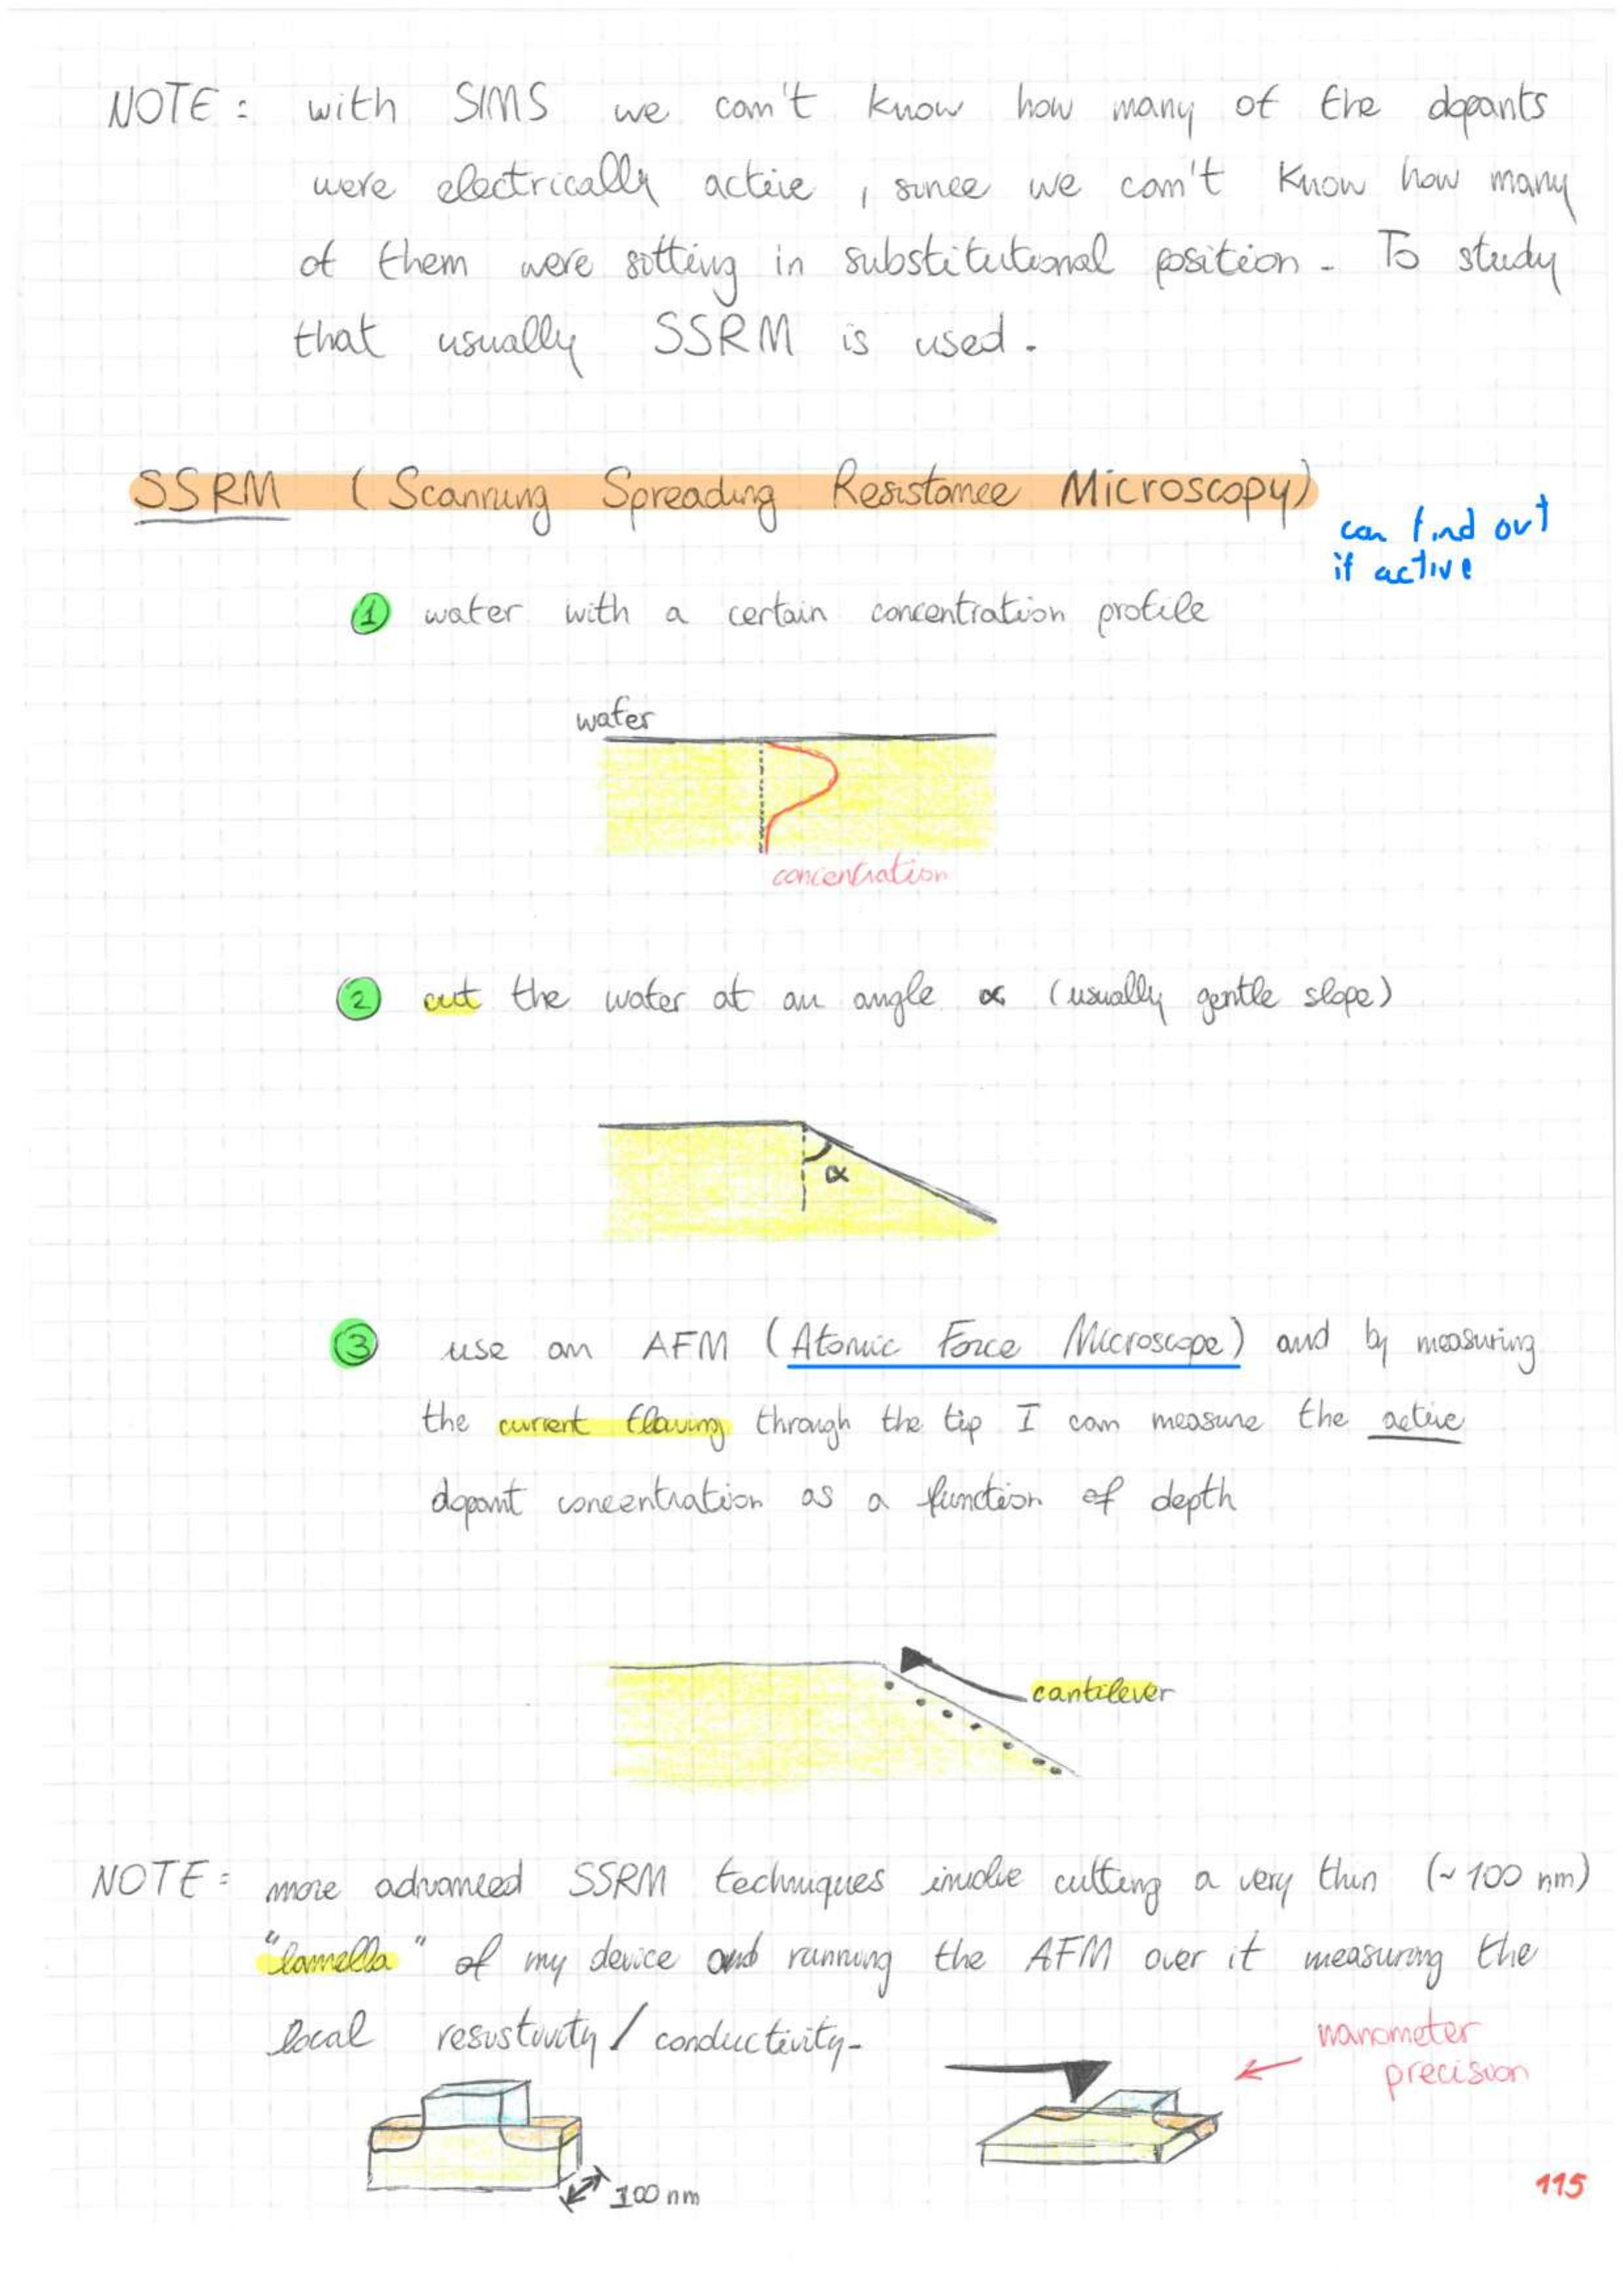 NOTE: with SIMS we can't know how many of the dopants
were electrically active, since we can't know how many
of them were sitting in substitutional position. To study
that usually SSRM is used.
SSRM (Scanning Spreading Resistance Microscopy)
can find out
if active
1 wafer with a certain concentration profile
wafer
concentration
2 cut the wafer at an angle α (usually gentle slope)
α
3 use an AFM (Atomic Force Microscope) and by measuring
the current flowing through the tip I can measure the active
dopant concentration as a function of depth
cantilever
NOTE: more advanced SSRM techniques involve cutting a very thin (~100 nm)
"lamella" of my device and running the AFM over it measuring the
local resistivity/conductivity.
nanometer
precision
100nm
115